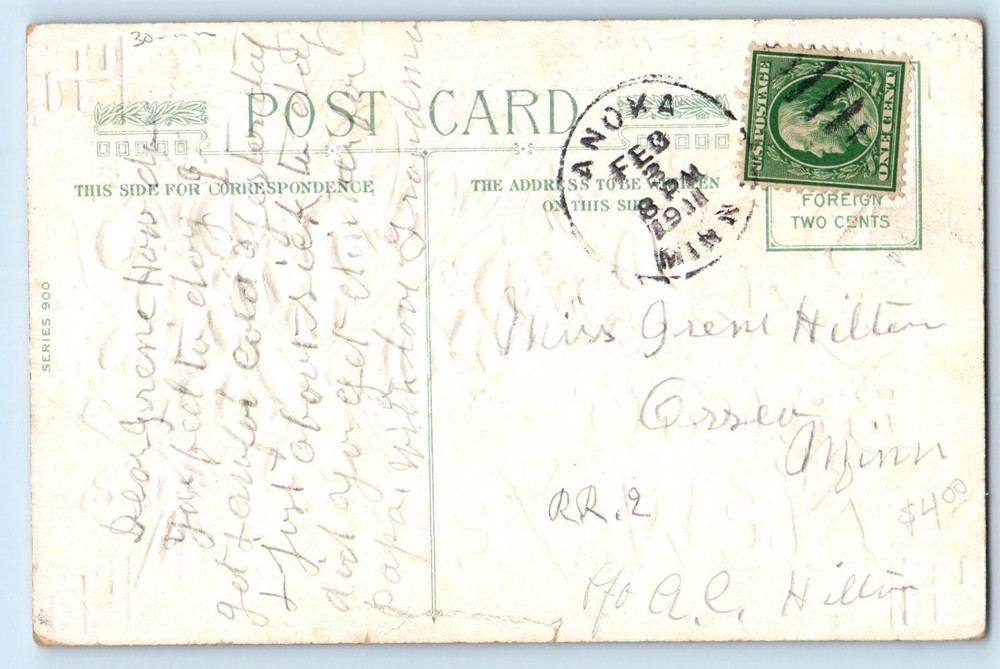 30
POST CARD
THIS SIDE FOR CORRESPONDENCE
THE ADDRESS TO BE WRITTEN
ON THIS SIDE
U.S. POSTAGE
ONE CENT
FOREIGN
TWO CENTS
ANOKA
FEB
3
8 PM
1911
MINN
SERIES 900
Dear Irene How do
you feel to day I
get awful cold yesterday
& just about sick to day
did you get dinner for
papa with love Grandma
Miss Irene Hilton
Osseo
Minn
RR. 2
c/o A. C. Hilton
$4.00